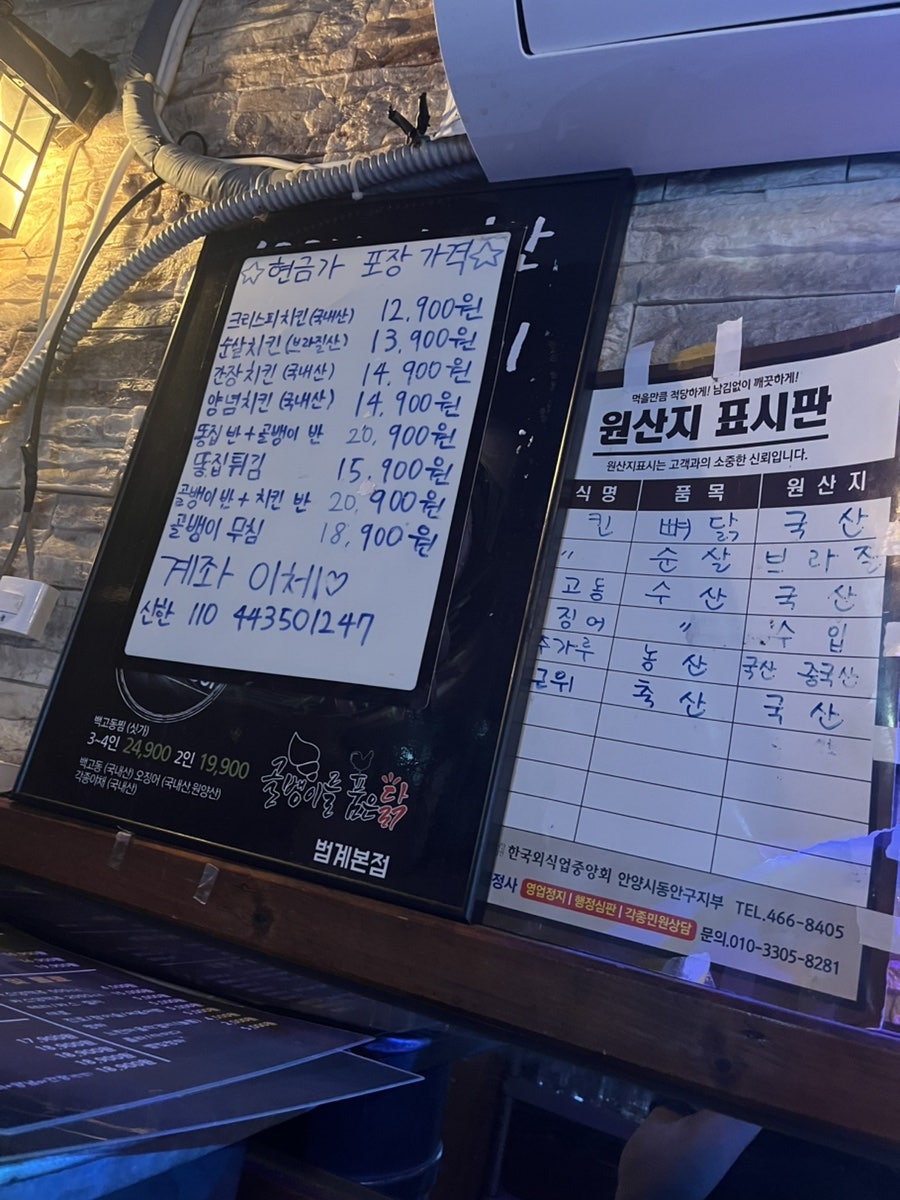 ☆현금가 포장 가격☆
크리스피치킨(국내산) 12,900원
순살치킨(브라질산) 13,900원
간장치킨(국내산) 14,900원
양념치킨(국내산) 14,900원
똥집 반+골뱅이 반 20,900원
똥집튀김 15,900원
골뱅이반+치킨 반 20,900원
골뱅이 무침 18,900원
계좌 이체♡
신한 110 443501247
백고동찜 (싯가)
3~4인 24,900 2인 19,900
백고동 (국내산) 오징어 (국내산,원양산)
각종야채 (국내산)
골뱅이를 품은닭
범계본점
먹을만큼 적당하게! 남김없이 깨끗하게!
원산지 표시판
원산지표시는 고객과의 소중한 신뢰입니다.
식명 품목 원산지
킨 뼈닭 국산
〃 순살 브라질
고동 수산 국산
징어 〃 수입
추가루 농산 국산 중국산
근위 축산 국산
한국외식업중앙회 안양시동안구지부 TEL.466-8405
정사 영업정지 | 행정심판 | 각종민원상담 문의.010-3305-8281